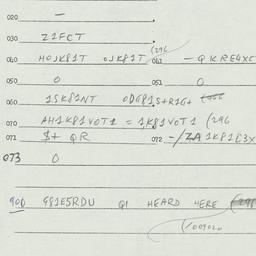 020 —
030 Z1FCT
040 HOJK81T OJK81T (296 041 - QKRE4XC
050 0 051 0
060 1SK81NT ODG81S+R1G+
070 AH1K81VOT1 = 1K81VOT1 (296
071 $+ QR 072 -/ZA1K81C3X
073 0
900 981E5RDU Q1 HEARD 4ERE